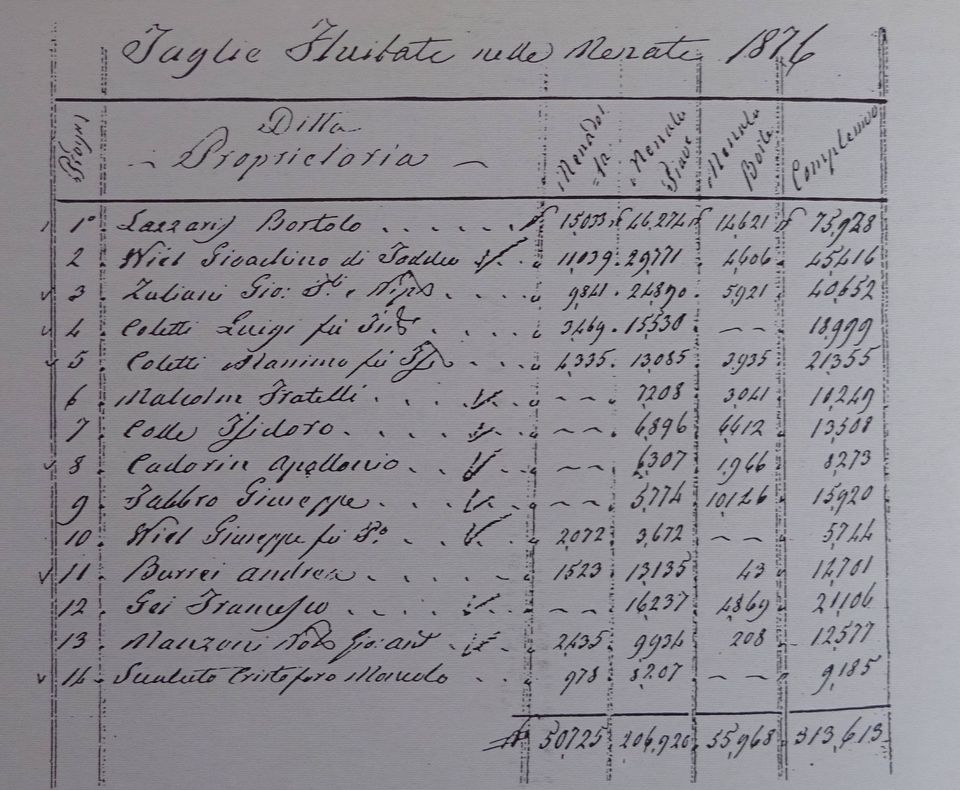 Taglie Fluitate nelle Menate 1876
Progr. Ditta Proprietaria Menada Menada Piave Menada Boite Complessivo
1° Lazzaris Bortolo 15033 46,274 14,621 75,928
2 Wiel Gioachino di Taddeo 11,039 29,771 4,606 45,416
3 Zuliani Gio: 9,841 24,890 5,921 40,652
4 Coletti Luigi fù 3,469 15,530 — — 18,999
5 Coletti Massimo fù 4,335 13,085 3,935 21,355
6 Malcolm Fratelli — — 7208 3,041 10,249
7 Colle Isidoro — — 6,896 6,612 13,508
8 Cadorin Apollonio — — 6,307 1,966 8,273
9 Fabbro Giuseppe — — 5,774 10,146 15,920
10 Wiel Giuseppe fù 2,072 3,672 — — 5,744
11 Burrei Andrea 1,523 13,135 43 14,701
12 Gei Francesco — — 16,237 4,869 21,106
13 Manzoni 2,435 9,934 208 12,577
14 Cristoforo 978 8,207 — — 9,185
50725 206,920 55,968 313,613